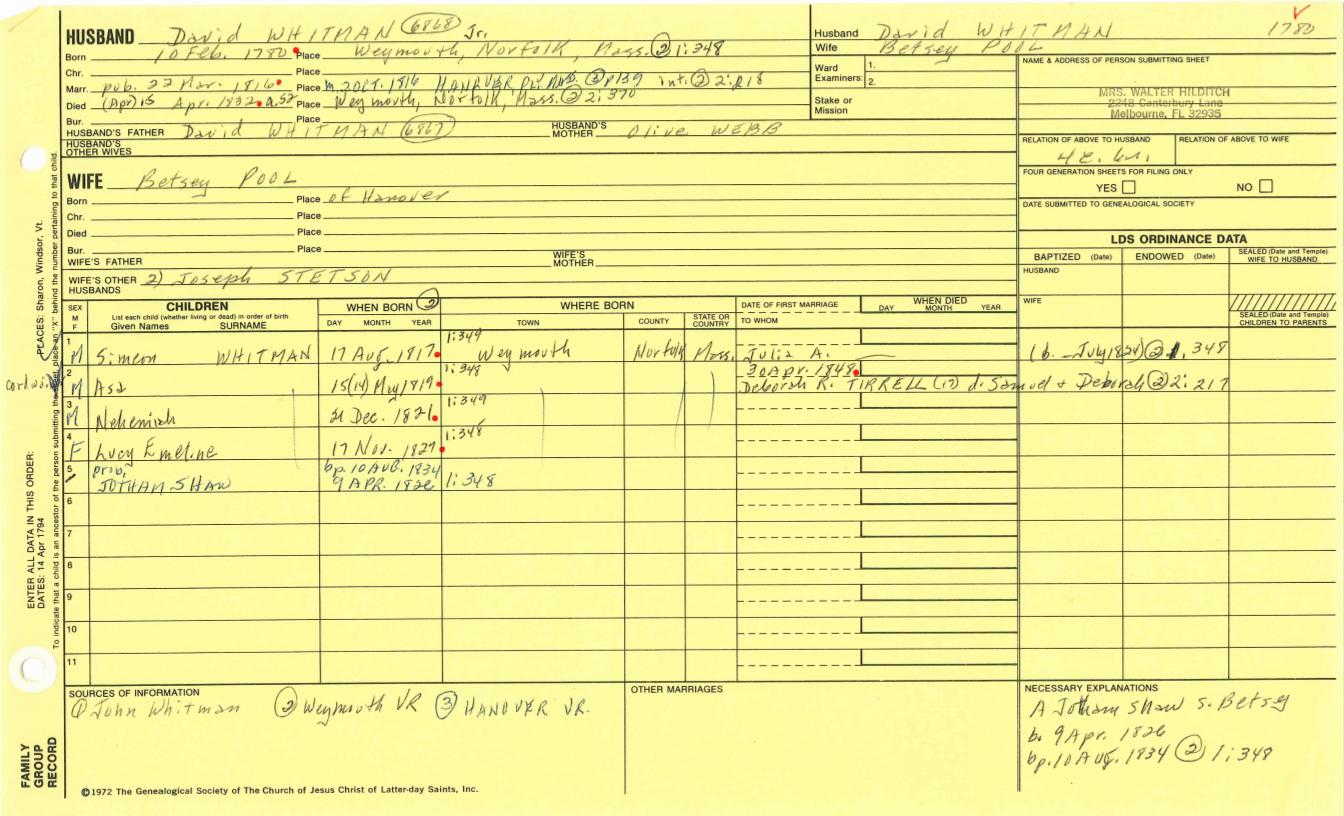 HUSBAND David WHITMAN (6868) Jr.
Born 10 Feb. 1780 Place Weymouth, Norfolk, Mass. ② 1:348
Chr. Place
Marr. pub. 22 Mar. 1816 Place m. 2 OCT. 1816 HANOVER, Pl. MS. ③ p139 int. ② 2:218
Died (Apr) 15 Apr. 1832 a. 52 Place Weymouth, Norfolk, Mass. ② 2:370
Bur. Place
HUSBAND'S FATHER David WHITMAN (6867) HUSBAND'S MOTHER Olive WEBB
HUSBAND'S OTHER WIVES
WIFE Betsey POOL
Born Place of Hanover
Chr. Place
Died Place
Bur. Place
WIFE'S FATHER WIFE'S MOTHER
WIFE'S OTHER HUSBANDS 2) Joseph STETSON
Husband David WHITMAN 1780
Wife Betsey POOL
Ward Examiners: 1.
2.
Stake or Mission
NAME & ADDRESS OF PERSON SUBMITTING SHEET
MRS. WALTER HILDITCH
2248 Canterbury Lane
Melbourne, FL 32935
RELATION OF ABOVE TO HUSBAND RELATION OF ABOVE TO WIFE
4c.
FOUR GENERATION SHEETS FOR FILING ONLY
YES NO
DATE SUBMITTED TO GENEALOGICAL SOCIETY
LDS ORDINANCE DATA
BAPTIZED (Date) ENDOWED (Date) SEALED (Date and Temple) WIFE TO HUSBAND
HUSBAND
WIFE
SEALED (Date and Temple) CHILDREN TO PARENTS
SEX M F
CHILDREN
List each child (whether living or dead) in order of birth
Given Names SURNAME
WHEN BORN ②
DAY MONTH YEAR
WHERE BORN
TOWN COUNTY STATE OR COUNTRY
DATE OF FIRST MARRIAGE
TO WHOM
WHEN DIED
DAY MONTH YEAR
1 M Simeon WHITMAN 17 Aug. 1817 1:349 Weymouth Norfolk Mass. Julia A. (b. July 1824) ② 1:348
2 M Asa 15(14) May 1819 1:348 30 Apr. 1848 Deborah R. TIRRELL (17) d. Samuel + Deborah ② 2:217
3 M Nehemiah 21 Dec. 1821 1:349
4 F Lucy Emeline 17 Nov. 1827 1:348
5 prob. JOTHAM SHAW bp. 10 AUG. 1834 9 APR. 1826 1:348
6
7
8
9
10
11
SOURCES OF INFORMATION
① John Whitman ② Weymouth VR ③ HANOVER VR.
OTHER MARRIAGES
NECESSARY EXPLANATIONS
A Jotham Shaw s. Betsey
b. 9 Apr. 1826
bp. 10 Aug. 1834 ② 1:348
©1972 The Genealogical Society of The Church of Jesus Christ of Latter-day Saints, Inc.
FAMILY GROUP RECORD
ENTER ALL DATA IN THIS ORDER:
DATES: 14 Apr 1794
PLACES: Sharon, Windsor, Vt.
To indicate that a child is an ancestor of the person submitting the sheet, place an "X" behind the number pertaining to that child.